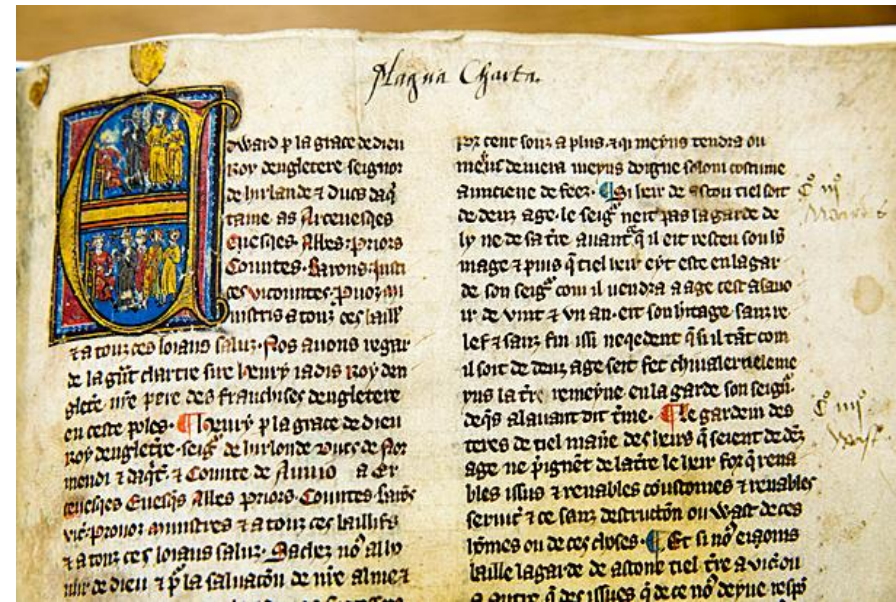 Magna Charta.
Edward p la grace de dieu
roy dengletere seignor
de hirlande ⁊ Ducs daq̃
taine as Arceuesqes
Euesqes Abbes Priors
Countes Barons Justi
ces vicountes
ministris a touz ces baill
⁊ a touz ces loiaus saluz Nos auons regar
de la gñt chartre sire henry iadis roy den
gletẽ nr̃e pere des franchises dengletere
en ceste
¶ henry p la grace de dieu
roy dengletẽre seigᷣ de hirlonde ducs de Nor
mendi ⁊ daqt̃ ⁊ Counte de a
Euesqes Abbes priors Countes
ministres ⁊ a touz ces baillifs
⁊ a touz ces loiaus saluz Sachez
de dieu ⁊ p̃ la saluacõn de nr̃e alme ⁊
por cent souz a plus ⁊ qi meyns tendra ou
meĩs deuiera meyns doigne solom costume
aunciene de feez ¶ Si heir de ascou tiel soit
de denz age le seigᷣ neit pas la garde de
ly ne de sa tr̃e auant q̃ il eit resceu son ho
mage ⁊ puis q̃ tiel heir eyt este en la gar
de son seigᷣ com il uendra a age cest a sauo
ir de vint ⁊ vn an eit son heritage sanz re
lef ⁊ sanz fin issi neqedent q̃ si il tãt com
il soit de denz age seit fet chiualer
la tr̃e remeyne en la garde son seigũ
deqs al auant dit t̃me ¶ Le gardein des
teres de tiel mañe des heirs q̃ seient de dẽz
age ne pignẽt de la tr̃e le heir forq̃ rena
bles issus ⁊ renables coustomes ⁊ renables
seruic̃ ⁊ ce sanz destructõn ou wast de ces
hõmes ou de ces choses ¶ Et si no⁹
baille la garde de tiel tr̃e a vicõu
a autre q̃ des issues q̃ de ce no⁹ deyue respõ